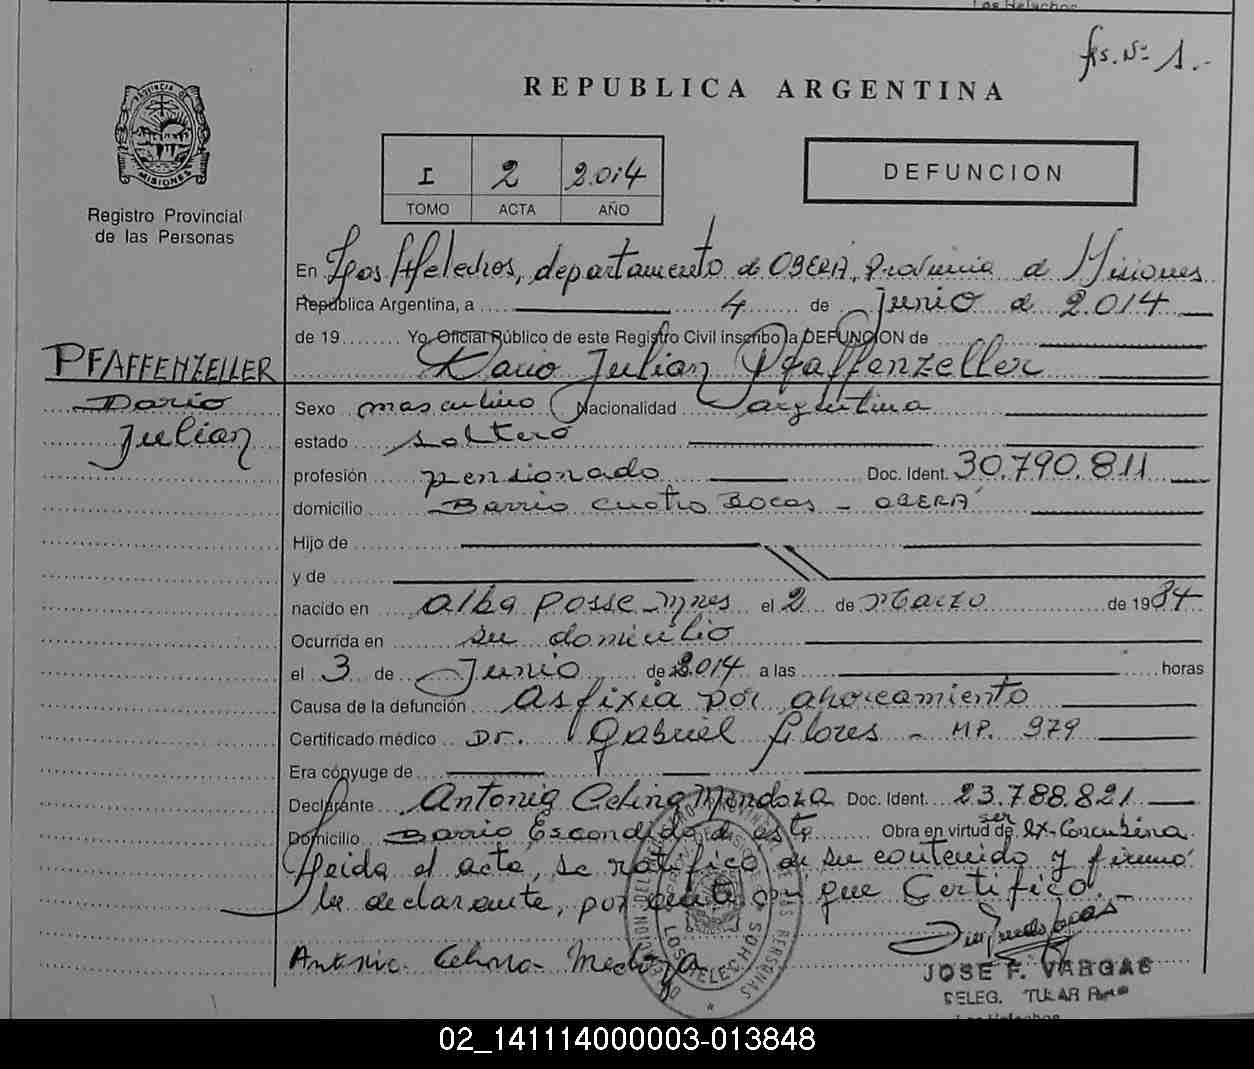 fs. Nº 1.-
REPUBLICA ARGENTINA
PROVINCIA DE
MISIONES
I 2 2.014
TOMO ACTA AÑO
DEFUNCION
Registro Provincial
de las Personas
En Los Helechos, departamento de OBERÁ, Provincia de Misiones
República Argentina, a 4 de Junio de 2.014
de 19 Yo, Oficial Público de este Registro Civil inscribo la DEFUNCION de
PFAFFENZELLER
Dario Julian Pfaffenzeller
Dario
Julian
Sexo masculino Nacionalidad argentina
estado soltero
profesión pensionado Doc. Ident. 30.790.811
domicilio Barrio Cuatro Bocas - OBERÁ
Hijo de
y de
nacido en Alba Posse - Mnes el 2 de Marzo de 1984
Ocurrida en su domicilio
el 3 de Junio de 2.014 a las horas
Causa de la defunción Asfixia por ahorcamiento
Certificado médico Dr. Gabriel Flores - MP. 979
Era cónyuge de
Declarante Antonia Celina Mendoza Doc. Ident. 23.788.821
Domicilio Barrio Escondido de este Obra en virtud de ser ex-Concubina
Leida el acta, se ratificó de su contenido y firmó
la declarante, por ante mi que Certifico.-
LOS HELECHOS
JOSE F. VARGAS
DELEG. TITULAR
Los Helechos
02_141114000003-013848